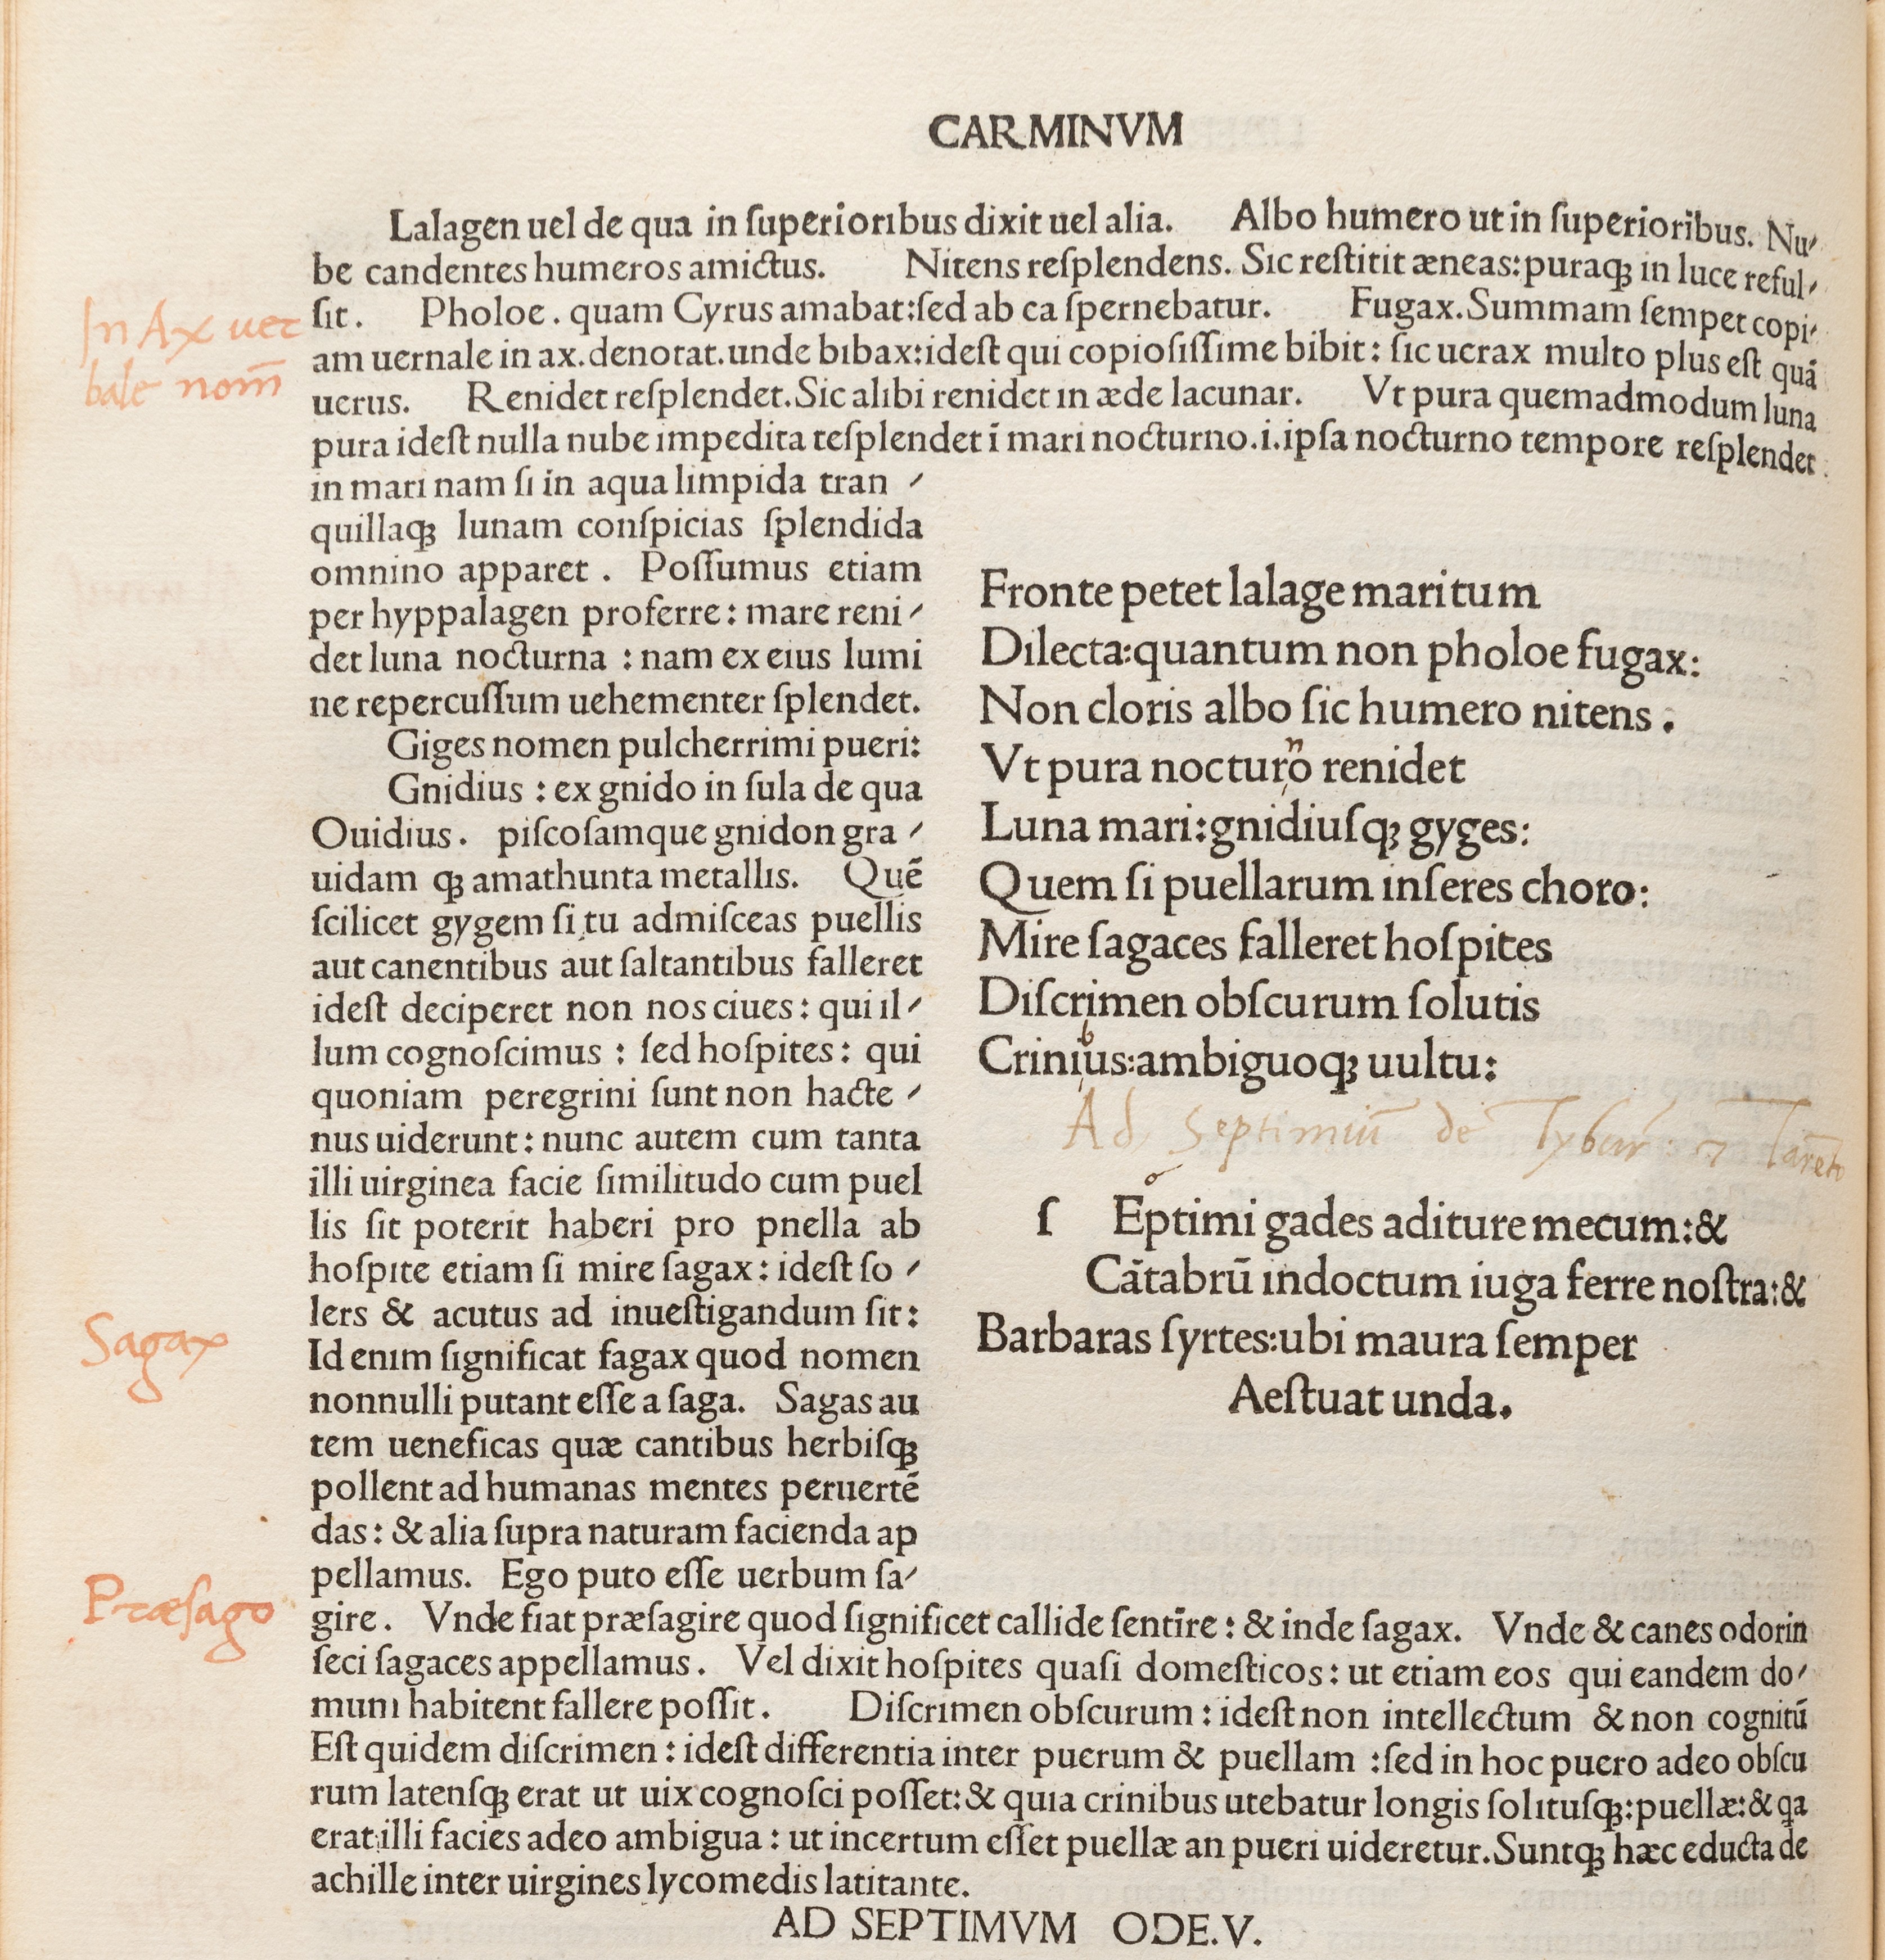 CARMINVM
Lalagen uel de qua in ſuperioribus dixit uel alia. Albo humero ut in ſuperioribus. Nu⸗
be candentes humeros amictus. Nitens reſplendens. Sic reſtitit æneas: puraqꝫ in luce reful⸗
ſit. Pholoe. quam Cyrus amabat: ſed ab ea ſpernebatur. Fugax. Summam ſemper copi⸗
am uernale in ax. denotat. unde bibax: ideſt qui copioſiſſime bibit: ſic uerax multo plus eſt quã
uerus. Renidet reſplendet. Sic alibi renidet in æde lacunar. Vt pura quemadmodum luna
pura ideſt nulla nube impedita reſplendet ĩ mari nocturno. i. ipſa nocturno tempore reſplendet
In Ax uer
bale nom̄
in mari nam ſi in aqua limpida tran⸗
quillaqꝫ lunam conſpicias ſplendida
omnino apparet. Poſſumus etiam
per hyppalagen proferre: mare reni⸗
det luna nocturna: nam ex eius lumi
ne repercuſſum uehementer ſplendet.
Giges nomen pulcherrimi pueri:
Gnidius: ex gnido in ſula de qua
Ouidius. piſcoſamque gnidon gra⸗
uidam qꝫ amathunta metallis. Quẽ
ſcilicet gygem ſi tu admiſceas puellis
aut canentibus aut ſaltantibus falleret
ideſt deciperet non nos ciues: qui il⸗
lum cognoſcimus: ſed hoſpites: qui
quoniam peregrini ſunt non hacte⸗
nus uiderunt: nunc autem cum tanta
illi uirginea facie ſimilitudo cum puel
lis ſit poterit haberi pro pnella ab
hoſpite etiam ſi mire ſagax: ideſt ſo⸗
lers & acutus ad inueſtigandum ſit:
Id enim ſignificat ſagax quod nomen
nonnulli putant eſſe a ſaga. Sagas au
tem ueneficas quæ cantibus herbiſqꝫ
pollent ad humanas mentes peruertẽ
das: & alia ſupra naturam facienda ap
pellamus. Ego puto eſſe uerbum ſa⸗
Sagax
Præſago
Fronte petet lalage maritum
Dilecta: quantum non pholoe fugax:
Non cloris albo ſic humero nitens.
n
Vt pura nocturo renidet
Luna mari: gnidiuſqꝫ gyges:
Quem ſi puellarum inſeres choro:
Mire ſagaces falleret hoſpites
Diſcrimen obſcurum ſolutis
b
Crinius: ambiguoqꝫ uultu:
Ad Septimiũ de Tybur: & Tarẽto
o
ſ Eptimi gades aditure mecum: &
Cãtabrũ indoctum iuga ferre noſtra: &
Barbaras ſyrtes: ubi maura ſemper
Aeſtuat unda.
gire. Vnde fiat præſagire quod ſignificet callide ſentire: & inde ſagax. Vnde & canes odorin
ſeci ſagaces appellamus. Vel dixit hoſpites quaſi domeſticos: ut etiam eos qui eandem do⸗
mum habitent fallere poſſit. Diſcrimen obſcurum: ideſt non intellectum & non cognitũ
Eſt quidem diſcrimen: ideſt differentia inter puerum & puellam: ſed in hoc puero adeo obſcu
rum latenſqꝫ erat ut uix cognoſci poſſet: & quia crinibus utebatur longis ſolituſqꝫ: puellæ: & qa
erat illi facies adeo ambigua: ut incertum eſſet puellæ an pueri uideretur. Suntqꝫ hæc educta de
achille inter uirgines lycomedis latitante.
AD SEPTIMVM ODE. V.